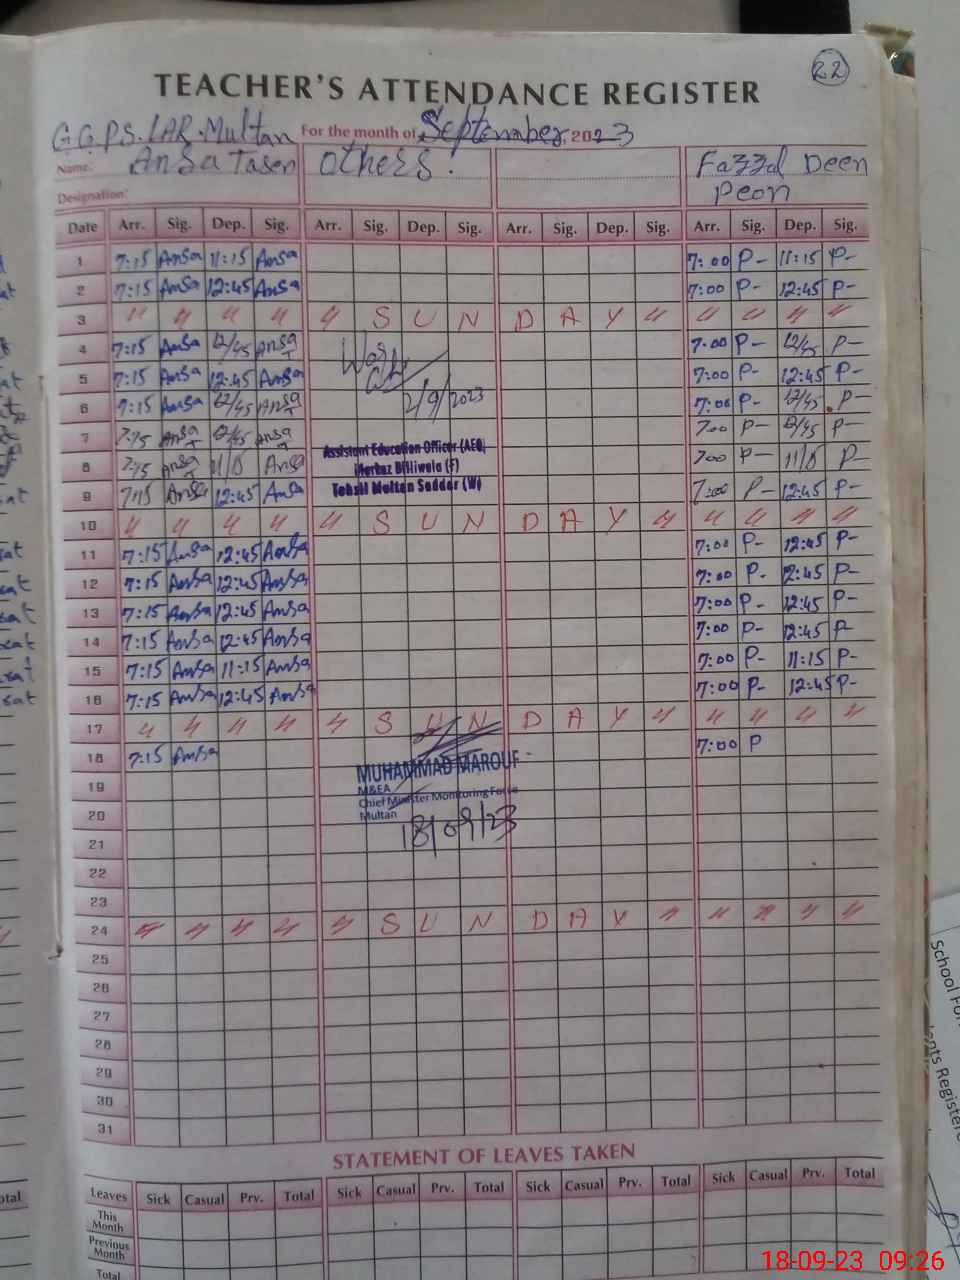 22
TEACHER'S ATTENDANCE REGISTER
G.G.P.S. LAR. Multan For the month of September, 2023
Name: Ansa Taseen Others. Fazzal Deen
Designation: Peon
Date Arr. Sig. Dep. Sig. Arr. Sig. Dep. Sig. Arr. Sig. Dep. Sig. Arr. Sig. Dep. Sig.
1 7:15 Ansa 11:15 Ansa 7:00 P- 11:15 P-
2 7:15 Ansa 12:45 Ansa 7:00 P- 12:45 P-
3 S U N D A Y
4 7:15 Ansa 12/45 Ansa 7:00 P- 12/45 P-
5 7:15 Ansa 12:45 Ansa 7:00 P- 12:45 P-
6 7:15 Ansa 12/45 Ansa 2/9/2023 7:00 P- 12/45 P-
7 7:15 Ansa 12/45 Ansa 700 P- 12/45 P-
Assistant Education Officer (AEO)
8 7:15 Ansa 11/15 Ansa Markaz Billiwala (F) 700 P- 11/15 P
9 7:15 Ansa 12:45 Ansa Tehsil Multan Saddar (W) 7:00 P- 12:45 P-
10 S U N D A Y
11 7:15 Ansa 12:45 Ansa 7:00 P- 12:45 P-
12 7:15 Ansa 12:45 Ansa 7:00 P- 12:45 P-
13 7:15 Ansa 12:45 Ansa 7:00 P- 12:45 P-
14 7:15 Ansa 12:45 Ansa 7:00 P- 12:45 P-
15 7:15 Ansa 11:15 Ansa 7:00 P- 11:15 P-
16 7:15 Ansa 12:45 Ansa 7:00 P- 12:45 P-
17 S U N D A Y
18 7:15 Ansa 7:00 P
MUHAMMAD MAROUF
19 M&EA
Chief Minister Monitoring Force
20 Multan
18/09/23
21
22
23
24 S U N D A Y
25
26
27
28
29
30
31
STATEMENT OF LEAVES TAKEN
Leaves Sick Casual Prv. Total Sick Casual Prv. Total Sick Casual Prv. Total Sick Casual Prv. Total
This Month
Previous Month
Total
School For
ents Registere
18-09-23 09:26